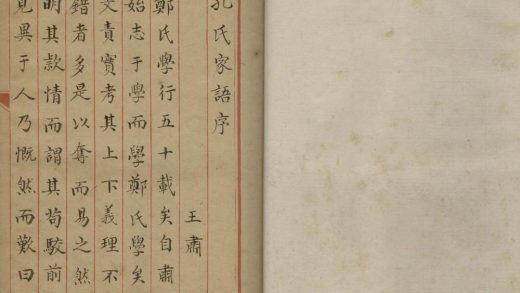 孔氏家語序
王肅
鄭氏學行五十載矣自肅
始志于學而學鄭氏學矣
文責實考其上下義理不
錯者多是以奪而易之然
明其款情而謂其苟駁前
見異于人乃慨然而歎曰